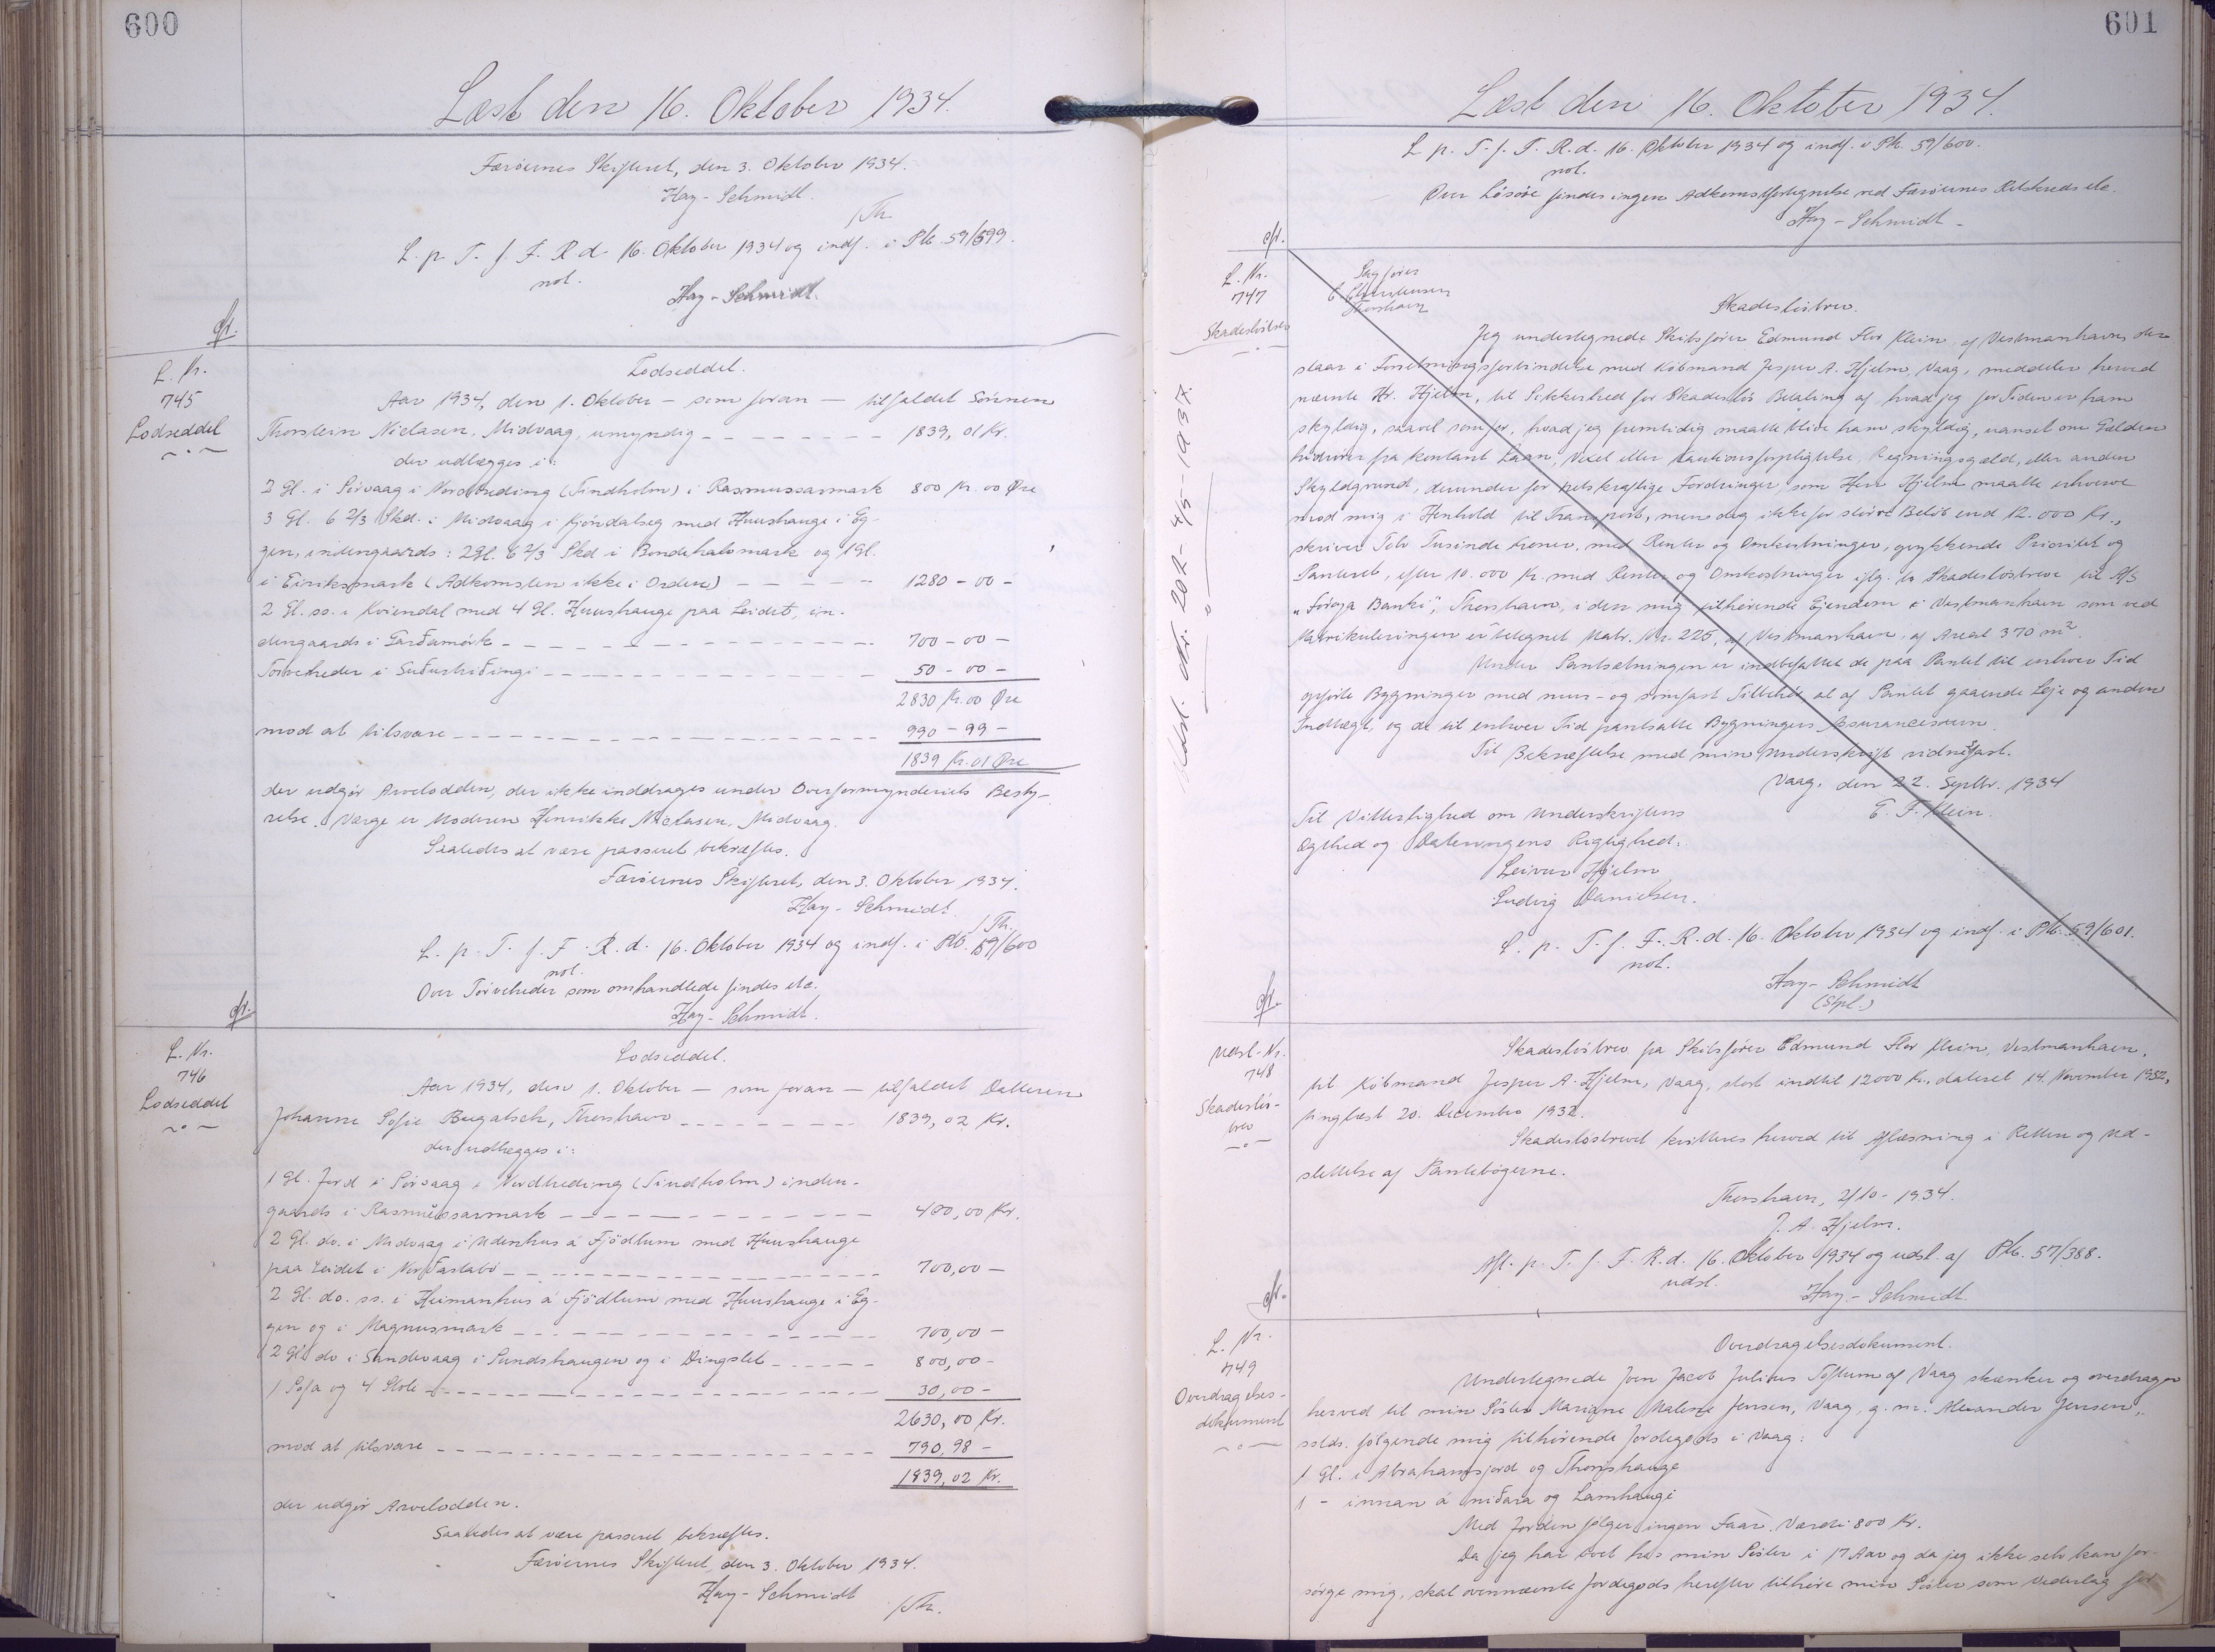 600
Læst den 16. Oktober 1934.
Færöernes Skifteret, den 3. Oktober 1934.
Hay-Schmidt.
/Th.
L. p. T. f. F. R. d. 16. Oktober 1934 og indf. i Pb. 59/599.
not.
Hay-Schmidt.
cfr.
L. Nr.
745
Lodseddel
Lodseddel.
Aar 1934, den 1. Oktober — som foran — tilfaldet Sönnen
Thorstein Niclasen, Midvaag, umyndig 1839,01 Kr.
der udlægges i:
2 Gl. i Sörvaag i Nordheding (Tindholm) i Rasmussarmark 800 Kr. 00 Öre
3 Gl. 6 2/3 Skd. i Midvaag i Kjöndalseg med Huushauge i Eg-
gen, indengaards: 2 Gl. 6 2/3 Skd i Bondehalsmark og 1 Gl.
i Eiriksmark (Adkomsten ikke i Orden) 1280 - 00 -
2 Gl. ss. i Kviendal med 4 Gl. Huushauge paa Leidet, in-
dengaards i Garðamörk 700 - 00 -
Törveheder i Suðurhiðingi 50 - 00 -
2830 Kr. 00 Öre
mod at tilsvare 990 - 99 -
1839 Kr. 01 Öre
der udgör Arvelodden, der ikke inddrages under Overformynderiets Besty-
relse. Værge er Moderen Henrikke Niclasen, Midvaag.
Saaledes at være passeret bekræftes.
Færöernes Skifteret, den 3. Oktober 1934.
Hay-Schmidt.
/Th.
L. p. T. f. F. R. d. 16. Oktober 1934 og indf. i Pb. 59/600
not.
Over Törveheder som omhandlede findes etc.
Hay-Schmidt.
cfr.
L. Nr.
746
Lodseddel
Lodseddel.
Aar 1934, den 1. Oktober — som foran — tilfaldet Datteren
Johanne Sofie Bugatsch, Thorshavn 1839,02 Kr.
der udlægges i:
1 Gl. Jord i Sörvaag i Nordheding (Tindholm) inden-
gaards i Rasmussarmark 400,00 Kr.
2 Gl. do. i Midvaag i Udenhus á Fjödlum med Huushauge
paa Leidet i Norðastabö 700,00 -
2 Gl. do. ss. i Heimanhus á Fjödlum med Huushauge i Eg-
gen og i Magnusmark 700,00 -
2 Gl. do i Sandevaag i Sundshaugen og i Dingslet 800,00 -
1 Sofa og 4 Stole 30,00 -
2630,00 Kr.
mod at tilsvare 790,98 -
1839,02 Kr.
der udgör Arvelodden.
Saaledes at være passeret bekræftes.
Færöernes Skifteret, den 3. Oktober 1934.
Hay-Schmidt
/Th.
601
Læst den 16. Oktober 1934.
L. p. T. f. F. R. d. 16. Oktober 1934 og indf. i Pb. 59/600.
not.
Over Lösöre findes ingen Adkomstfortegnelse ved Færöernes Retskreds etc.
Hay-Schmidt -
cfr.
L. Nr.
747
Skadeslösbrev
Sagförer
C. Christensen
Thorshavn
Udsl. 4/5-1937.
Skadeslösbrev.
Jeg undertegnede Skibsförer Edmund Flor Klein, af Vestmanhavn, der
staar i Forretningsforbindelse med Köbmand Jesper A. Hjelm, Vaag, meddeler herved
nævnte Hr. Hjelm, til Sikkerhed for Skadeslös Betaling af, hvad jeg for Tiden er ham
skyldig, saavel som for, hvad jeg fremtidig maatte blive ham skyldig, uanset om Gælden
hidrörer fra kontant Laan, Vexel eller Kautionsforpligtelse, Regningsgæld, eller anden
Skyldgrund, derunder for retskraftige Fordringer, som Herr Hjelm maatte erhverve
mod mig i Henhold til Transport, men dog ikke for större Belöb end 12.000 Kr.,
skriver Tolv Tusinde Kroner, med Renter og Omkostninger, oprykkende Prioritet og
Panteret, efter 10.000 Kr. med Renter og Omkostninger iflg. Skadeslösbreve til A/S
"Föroya Banki", Thorshavn, i den mig tilhörende Ejendom i Vestmanhavn som ved
Matrikuleringen er betegnet Matr. Nr. 225, af Vestmanhavn, af Areal 370 m².
Under Pantsætningen er indbefattet de paa Pantet til enhver Tid
opförte Bygninger med mur- og sömfast Tilbehör al af Pantet gaaende Leje og anden
Indtægt, og de til enhver Tid pantsatte Bygningers Assurancesum.
Til Bekræftelse med min Underskrift vidnefast.
Vaag, den 22. Septbr. 1934
E. F. Klein.
Til Vitterlighed om Underskriftens
Ægthed og Dateringens Rigtighed:
Leivur Hjelm
Ludvig Danielsen.
L. p. T. f. F. R. d. 16. Oktober 1934 og indf. i Pb. 59/601.
not.
Hay-Schmidt
(Stpl.)
cfr.
Udsl.-Nr.
748
Skadeslös-
brev
Skadeslösbrev fra Skibsförer Edmund Flor Klein, Vestmanhavn,
til Köbmand Jesper A. Hjelm, Vaag, stort indtil 12000 Kr., dateret 14. November 1932,
tinglæst 20. December 1932.
Skadeslösbrevet kvitteres herved til Aflæsning i Retten og Ud-
slettelse af Pantebögerne.
Thorshavn, 2/10 - 1934.
J. A. Hjelm.
Afl. p. T. f. F. R. d. 16. Oktober 1934 og udsl. af Pb. 57/388.
udsl.
Hay-Schmidt.
cfr.
L. Nr.
749
Overdragelses-
dokument
Overdragelsesdokument.
Undertegnede Joen Jacob Julius Toftum af Vaag skænker og overdrager
herved til min Söster Mariane Malene Jensen, Vaag, g. m. Alexander Jensen,
sstds. fölgende mig tilhörende Jordegods i Vaag:
1 Gl. i Abrahamsjord og Thorshauge
1 - innan á niðara og Lamhaugi
Med Jorden fölger ingen Faar. Værdi 800 Kr.
Da jeg har boet hos min Söster i 17 Aar og da jeg ikke selv kan for-
sörge mig, skal ovennævnte Jordegods herefter tilhöre min Söster som Vederlag for